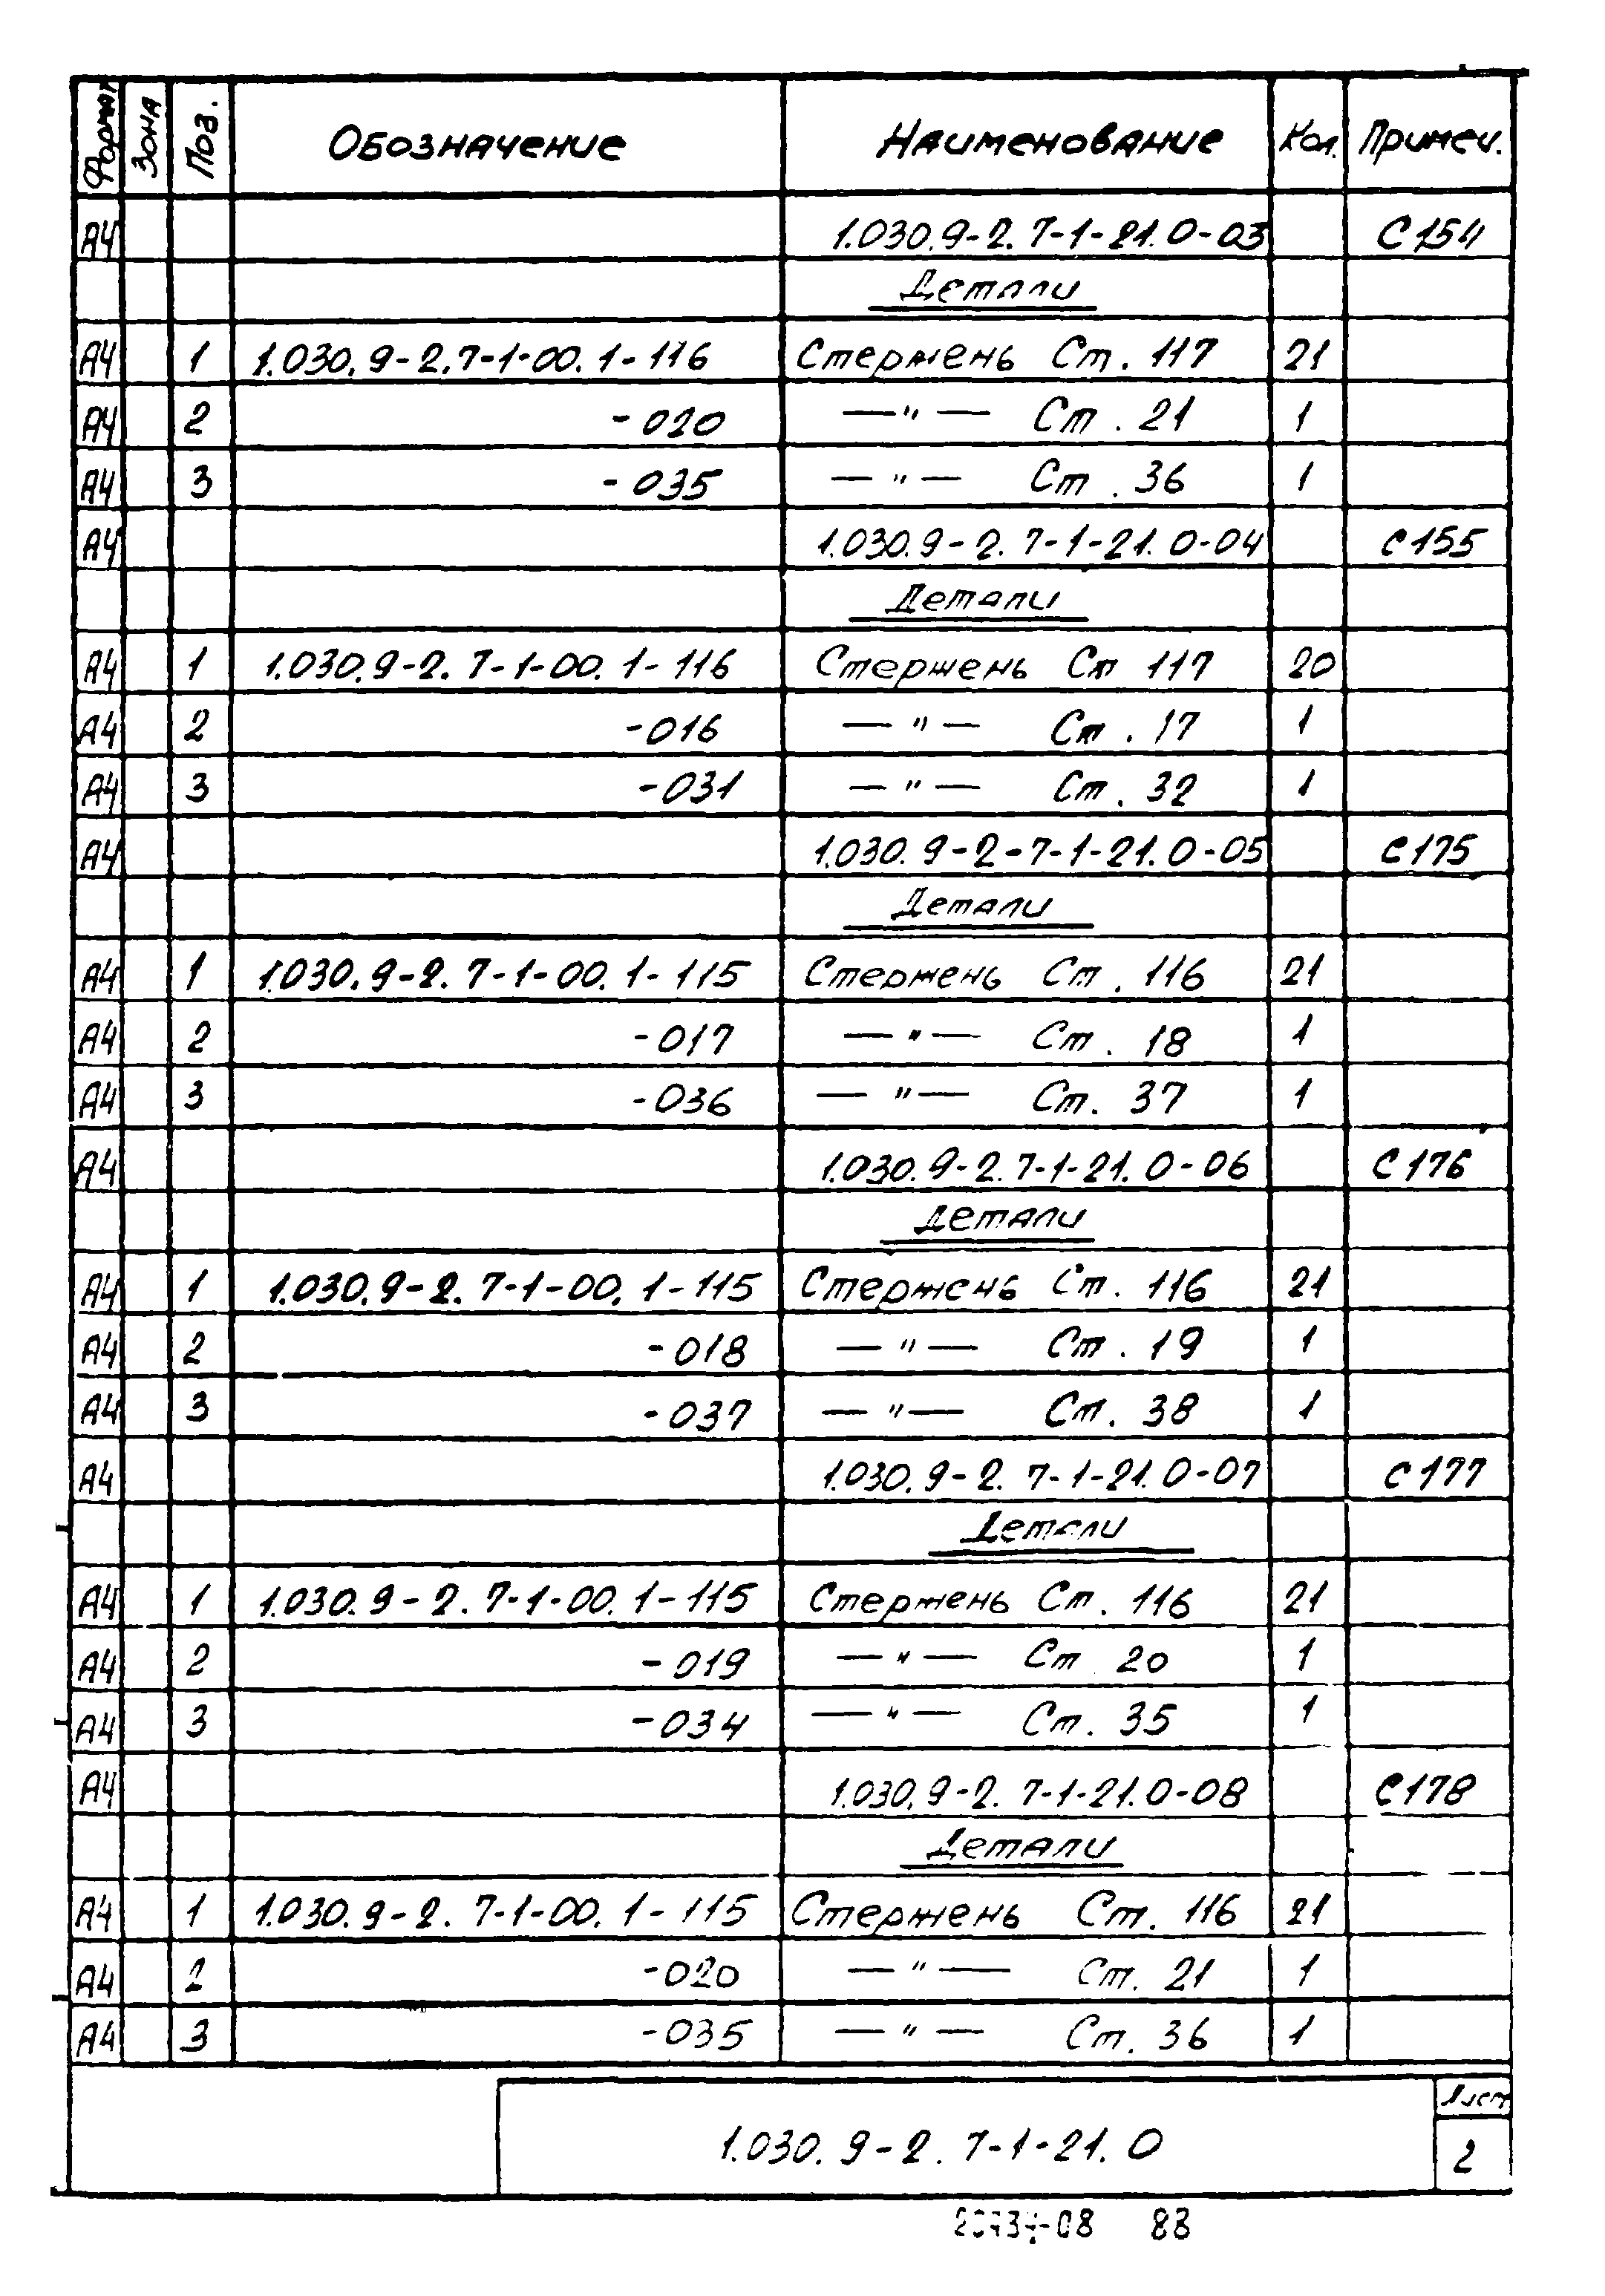 Формат Зона Поз. Обозначение Наименование Кол. Примеч.
А4 1.030.9-2.7-1-21.0-03 С154
Детали
А4 1 1.030.9-2.7-1-00.1-116 Стержень Ст. 117 21
А4 2 -020 —"— Ст. 21 1
А4 3 -035 —"— Ст. 36 1
А4 1.030.9-2.7-1-21.0-04 С155
Детали
А4 1 1.030.9-2.7-1-00.1-116 Стержень Ст 117 20
А4 2 -016 —"— Ст. 17 1
А4 3 -031 —"— Ст. 32 1
А4 1.030.9-2-7-1-21.0-05 С175
Детали
А4 1 1.030.9-2.7-1-00.1-115 Стержень Ст. 116 21
А4 2 -017 —"— Ст. 18 1
А4 3 -036 —"— Ст. 37 1
А4 1.030.9-2.7-1-21.0-06 С176
Детали
А4 1 1.030.9-2.7-1-00.1-115 Стержень Ст. 116 21
А4 2 -018 —"— Ст. 19 1
А4 3 -037 —"— Ст. 38 1
А4 1.030.9-2.7-1-21.0-07 С177
Детали
А4 1 1.030.9-2.7-1-00.1-115 Стержень Ст. 116 21
А4 2 -019 —"— Ст 20 1
А4 3 -034 —"— Ст. 35 1
А4 1.030.9-2.7-1-21.0-08 С178
Детали
А4 1 1.030.9-2.7-1-00.1-115 Стержень Ст. 116 21
А4 2 -020 —"— Ст. 21 1
А4 3 -035 —"— Ст. 36 1
Лист
1.030.9-2.7-1-21.0 2
88